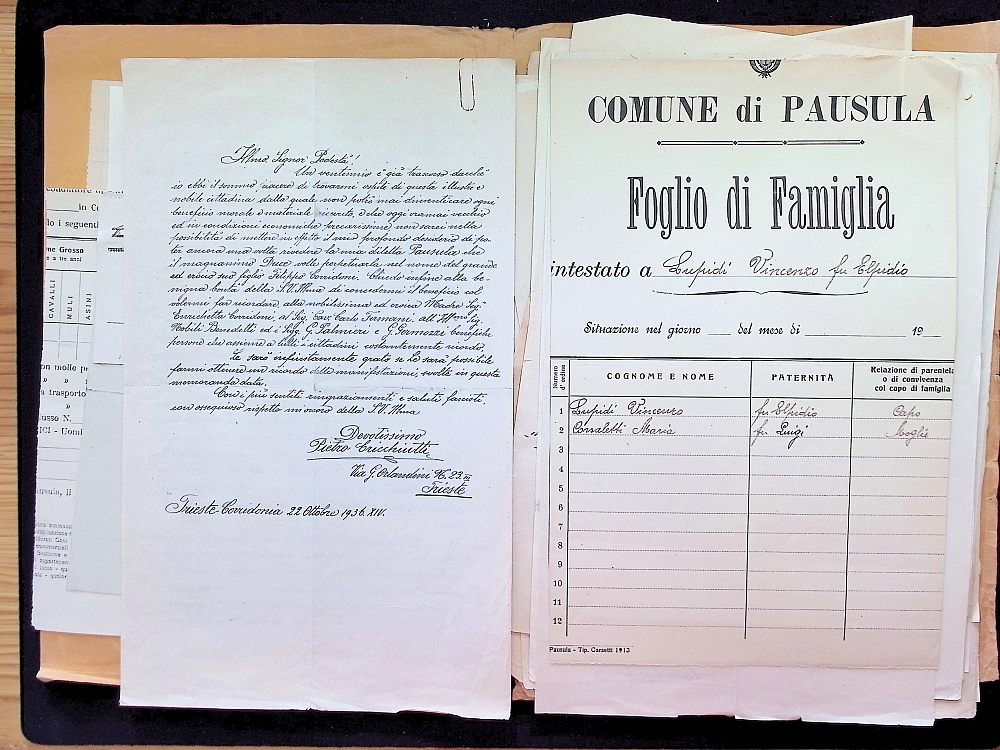 Illmo Signor Podestà!
Un ventennio è già trascorso dacchè
io ebbi il sommo piacere di trovarmi ospite di questa illustre e
nobile cittadina dalla quale non potrò mai dimenticare ogni
beneficio morale e materiale ricevuto, e che oggi oramai vecchio
ed in condizioni economiche precarissime non sarei nella
possibilità di mettere in effetto il mio profondo desiderio di po-
ter ancora una volta rivedere la mia diletta Pausula che
il magnanimo Duce volle perpetuarla nel nome del grande
ed eroico suo figlio Filippo Corridoni. Chiedo infine alla be-
nigna bontà della S.V. Illma di concedermi il beneficio col
volermi far ricordare alla nobilissima ed eroica Madre Sig.
Enrichetta Corridoni, al Sig. Cav. Carlo Firmani, all'Illmo Sig.
Nobili Benedetti ed i Sigg. G. Palmieri e G. Germozzi benefiche
persone che assieme a tutti i cittadini costantemente ricordo.
Le sarò infinitamente grato se Le sarà possibile
farmi ottenere un ricordo delle manifestazioni, svolte in questa
memoranda data.
Con i più sentiti ringraziamenti e saluti fascisti
con ossequioso rispetto mi onoro della S.V. Illma
Devotissimo
Pietro Cricchiutti
Via G. Orlandini N. 23.III
Trieste
Trieste-Corridonia 22 Ottobre 1936. XIV.
in Co
lo i seguenti
me Grosso
e a tre anni
CAVALLI
MULI
ASINI
on molle p
» »
a trasporto
»
usso N.
ICI - Uomi
COMUNE di PAUSULA
Foglio di Famiglia
intestato a Lupidi Vincenzo fu Elpidio
Situazione nel giorno del mese di 19
Numero d'ordine COGNOME E NOME PATERNITÀ Relazione di parentela
o di convivenza
col capo di famiglia
1 Lupidi Vincenzo fu Elpidio Capo
2 Corsaletti Maria fu Luigi Moglie
3
4
5
6
7
8
9
10
11
12
Pausula - Tip. Carzetti 1913